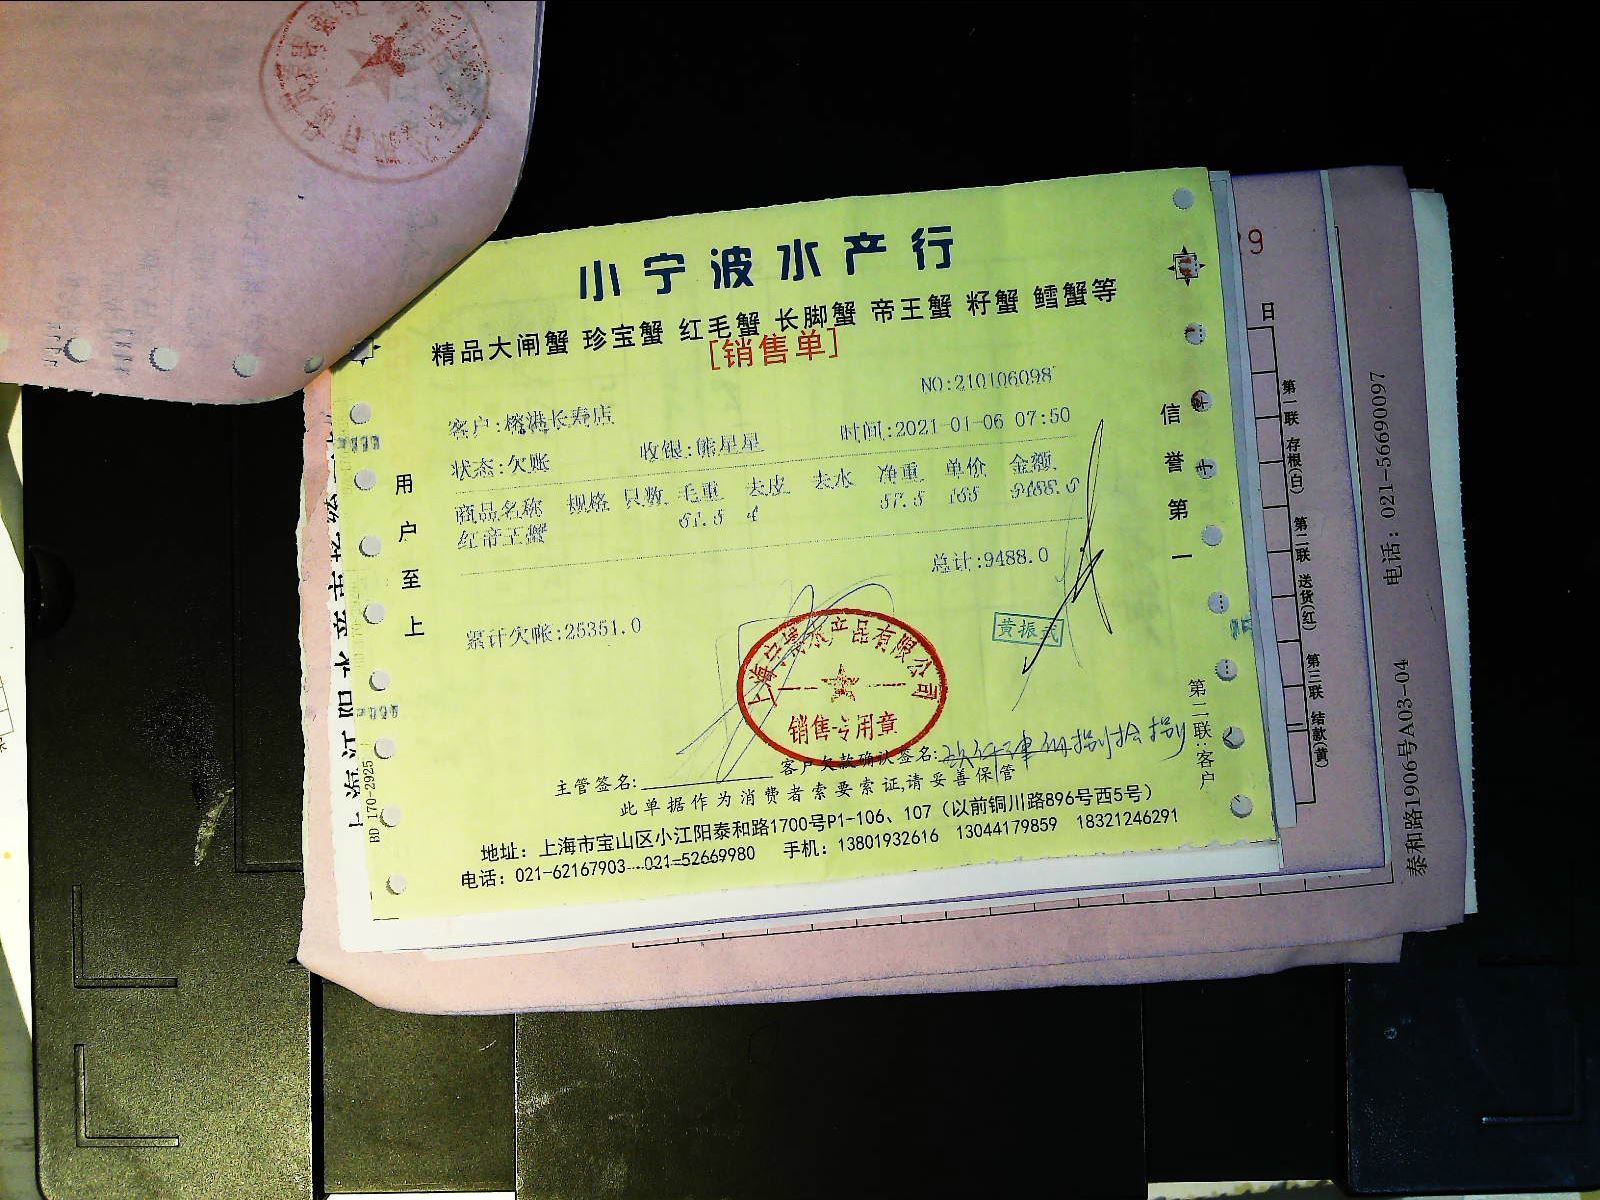 小宁波水产行
精品大闸蟹 珍宝蟹 红毛蟹 长脚蟹 帝王蟹 籽蟹 鳕蟹等
[销售单]
NO:210106098
客户:榕港长寿店
状态:欠账 收银:熊星星 时间:2021-01-06 07:50
商品名称 规格 只数 毛重 去皮 去水 净重 单价 金额
红帝王蟹 61.5 4 57.5 165 9488.0
总计:9488.0
累计欠帐:25351.0
用户至上
信誉第一
黄振
水产品有限公司
销售专用章
主管签名: 客户欠款确认签名:
此单据作为消费者索要索证,请妥善保管
地址: 上海市宝山区小江阳泰和路1700号P1-106、107 (以前铜川路896号西5号)
电话: 021-62167903 021-52669980 手机: 13801932616 13044179859 18321246291
第二联:客户
BD 170-2925
9
日
第一联 存根(白) 第二联 送货(红) 第三联 结款(黄)
泰和路1906号A03-04 电话: 021-56690097